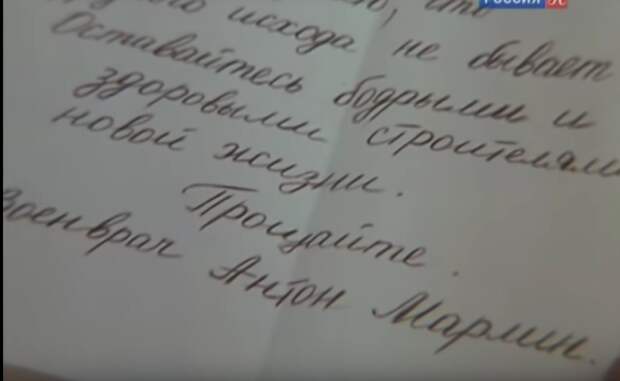 РОССИЯ К
исхода не бывает
Оставайтесь бодрыми и
здоровыми строителями
новой жизни.
Прощайте.
Военврач Антон Марлин.